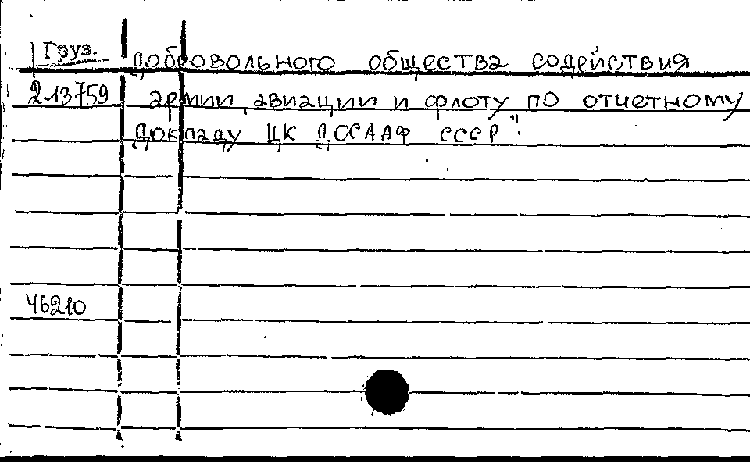 Груз. добровольного общества содействия
213759 армии, авиации и флоту по отчетному
докладу ЦК ДОСААФ СССР".
46210